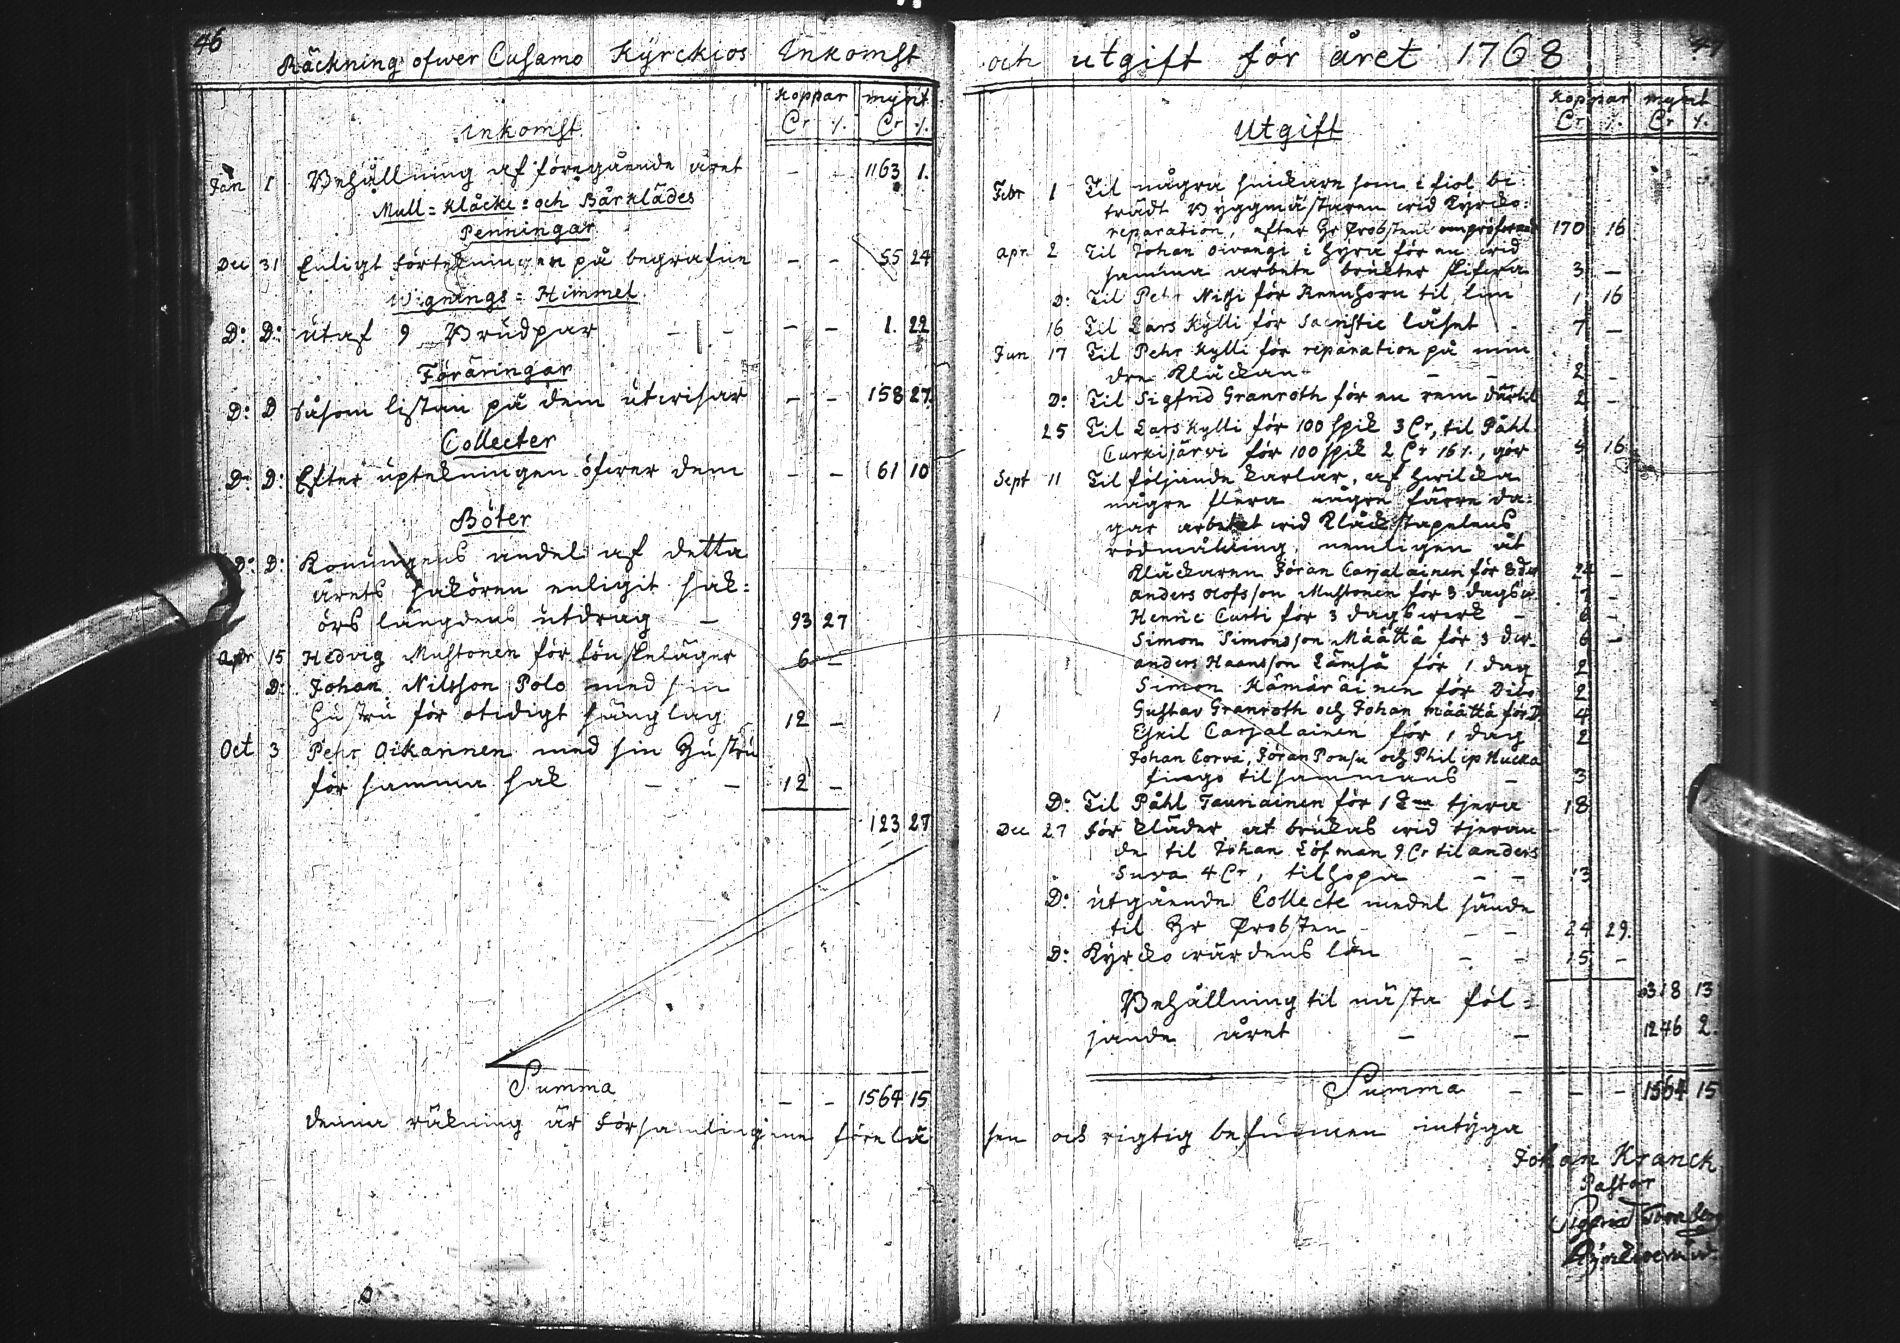 46
Räckning ofwer Cusamo Kyrckios Inkomst
koppar mynt
Cr ⁒. Cr ⁒.
Inkomst
Jan 1 Behållning af föregående året - - 1163 1.
Mull = Klåcke = och Bårklädes
Penningar
Dec 31 Enligt förtekningen på begrafne - - 55 24
Wignings = Himmel
D: D: utaf 9 Brudpar - - - - 1. 22
Föräringar
D: D såsom listan på dem utwisar - - 158 27.
Collecter
D: D: Efter uptekningen öfwer dem - - 61 10
Böter
D: D: Konungens andel af detta
årets saköron enligit sak=
örs längdens utdrag - 93 27
Apr 15 Hedvig Mustonen för lönskeläger 6 -
D: Johan Nilsson Polo med sin
hustru för otidigt sänglag 12 -
Oct 3 Pehr Oikarinen med sin Hustru
för samma sak - - 12 -
123 27
Summa - - 1564 15
denna räkning är församlingenne förelä
och utgift för året 1768
47
koppar mynt
Cr ⁒. Cr ⁒.
Utgift
Febr 1 Til några snickare som i fiol be
trädt Byggmästaren wid Kyrko=
reparation, efter Hr Probstens 170 16
Apr. 2 Til Johan Oivangi i hyra för en wid
samma arbete brukter 3 -
D: Til Pehr Nissi för Reenhorn til lim 1 16
16 Til Lars Kylli för Sacristie låset - 7 -
Jun 17 Til Pehr Kylli för reparation på min
dre Klåckan - - 2 -
D: Til Sigfrid Granroth för en rem därtil 2 -
25 Til Lars Kylli för 100 spik 3 Cr, til Påhl
Curkijärvi för 100 spik 2 Cr 16 ⁒., gör 5 16
Sept 11 Til följande karlar, af hwilcka
någre flera någre färre da=
gar arbetat wid Klåckstapelens
rödmålning, nemligen åt
Klåckaren Jöran Carjalainen för 8 24 -
Anders Olofsson Mustonen för 3 dagsw. 7 -
Henric Curti för 3 dagswerk - 6 -
Simon Simonsson Määttä för 3 dw. 6 -
Anders Haansson Lämsä för 1 dag 2
Simon Kämäräinen för Dito 2
Gustav Granroth och Johan Määttä för D 4
Eskil Carjalainen för 1 dag 2
Johan Corva, Jöran Pousu och Philip Hucka
fingo tilsammans - 3
D: Til Påhl Tauriainen för 1 tjera 18
Dec 27 För kläder at brukas wid tjeran
de til Johan Löfman 9 Cr til Anders
Sura 4 Cr, tilhopa - - 13
D: utgående Collecte medel sände
til Hr Probsten - - 24 29.
D: Kyrckowärdens lön - - 15 -
318 13
Behållning til nästa föl=
jande året - - 1246 2.
Summa - - - 1564 15
sen och rigtig befunnen intyga
Johan Kranck
Pastor